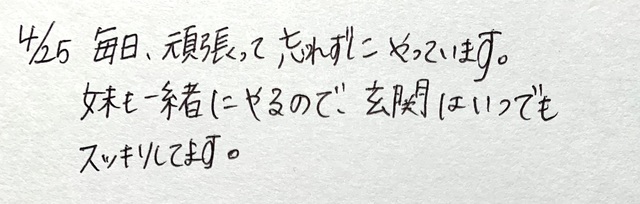 4/25 毎日、頑張って忘れずにやっています。
妹も一緒にやるので、玄関はいつでも
スッキリしてます。